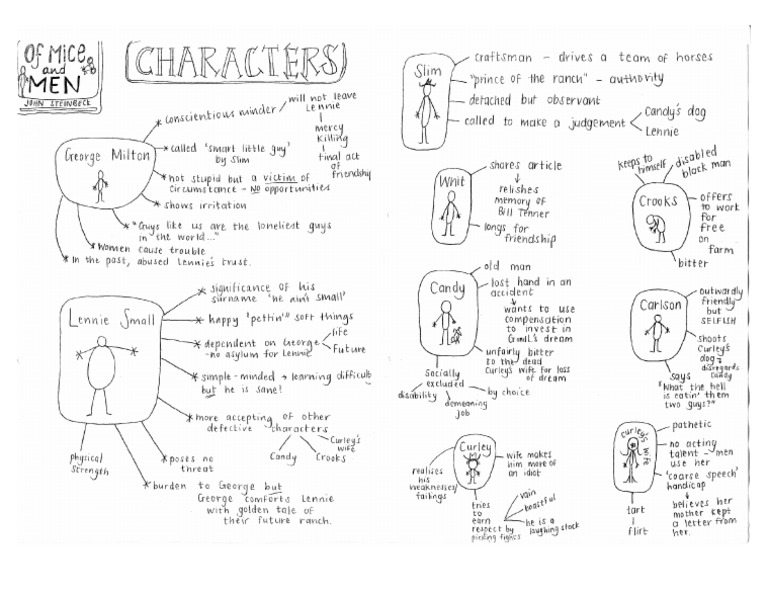 OF MICE
and
MEN
JOHN STEINBECK
CHARACTERS
George Milton
conscientious minder
will not leave
Lennie
mercy
killing
final act
of
friendship
called 'smart little guy'
by Slim
not stupid but a victim of
circumstance - NO opportunities
shows irritation
"Guys like us are the loneliest guys
in the world..."
Women cause trouble
In the past, abused Lennie's trust.
Lennie Small
significance of his
surname 'he ain't small'
happy 'pettin'' soft things
dependent on George
-no asylum for Lennie
life
Future
simple-minded → learning difficulty
but he is sane!
more accepting of other
defective characters
Candy
Crooks
Curley's
wife
physical
strength
poses no
threat
burden to George but
George comforts Lennie
with golden tale of
their future ranch.
Slim
craftsman - drives a team of horses
"prince of the ranch" - authority
detached but observant
called to make a judgement
Candy's dog
Lennie
Whit
shares article
relishes
memory of
Bill Tenner
longs for
friendship
Crooks
keeps to
himself
disabled
black man
offers
to work
for
free
on
farm
bitter
Candy
old man
lost hand in an
accident
wants to use
compensation
to invest in
G and L's dream
unfairly bitter
to the dead
Curley's wife for loss
of dream
Socially
excluded
disability
demeaning
job
by choice
Carlson
outwardly
friendly
but
SELFISH
shoots
Curley's
dog
disregards
Candy
says
"What the hell
is eatin' them
two guys?"
Curley
realises
his
weaknesses/
failings
wife makes
him more of
an idiot
tries
to
earn
respect by
picking fights
vain
boastful
he is a
laughing stock
Curley's
wife
pathetic
no acting
talent - men
use her
'coarse speech'
handicap
believes her
mother kept
a letter from
her.
tart
flirt